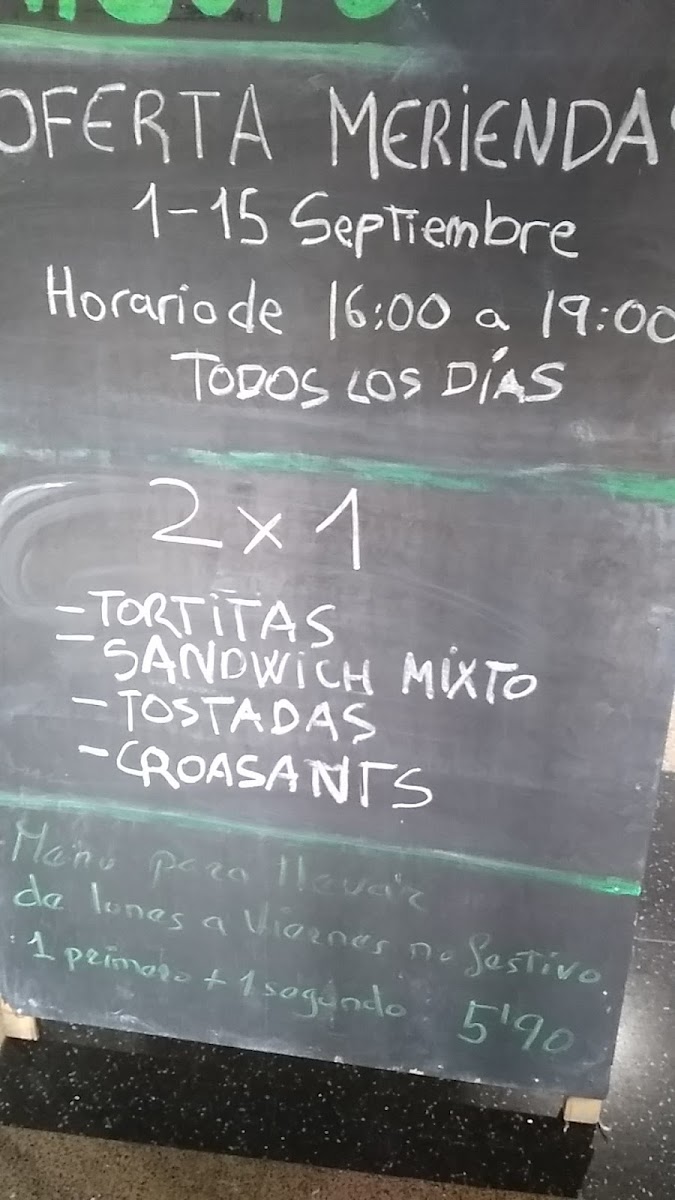 OFERTA MERIENDA
1-15 Septiembre
Horario de 16:00 a 19:00
TODOS LOS DÍAS
2 x 1
- TORTITAS
- SANDWICH MIXTO
- TOSTADAS
- CROASANTS
Menu para llevar
de lunes a Viernes no festivo
1 primero + 1 segundo 5'90